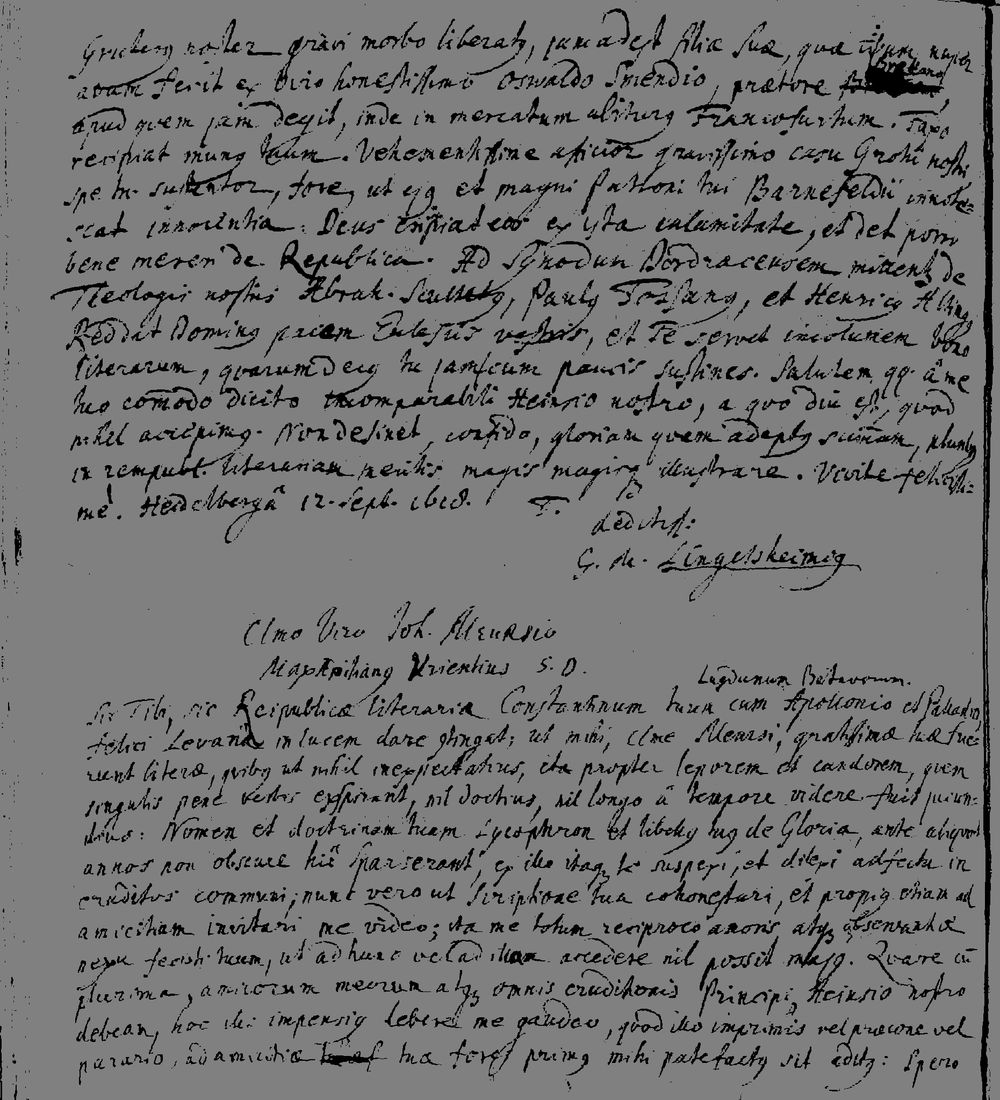 noster gravi morbo liberatq, jam adest filiæ suæ, quæ nuper
avum fecit ex viro honestissimo Oswaldo Smendio, prætore
apud quem jam degit, inde in mercatum abiturq Francofurtum.
recipiat munq tuum. Vehementissime aficior gravissimo casu Grotii nostri
spe tn. sustentor, fore, ut ejq et magni Patroni tui Barnefeldii innote-
scat innocentia. Deus eripiat eos ex ista calamitate, et det porro
bene mereri de Republica. Ad Synodum Dordracensem mittent de
Theologis nostris Abrah. Scultetq, Paulq Tossanq, et Henricq Alting,
Reddat Dominq pacem Eclesiis vestris, et Te servet incolumem bono
literarum, quarum decq tu jam cum paucis sustines. Salutem qq. â me
tuo com̃odo dicito incomparabili Heinsio nostro, a quo diu est, quod
nihil accepimq. Non desinet, confido, gloriam quem adeptq sum̃am,
in rempubl. literariam meritis magis magisq illustrare. Vivite felicissi-
mè. Heidelbergâ 12. Sept. 1618. T.
deditiss:
G. M. Lingelshemiq
Clmo Viro Joh. Meursio
Maxæmilianq Vrientius S. D.
Lugdunum Batavorum.
Sic Tibi, sic Reipublicæ literariæ Constantinum tuum cum Apollonio et
felici Levanâ in lucem dare contingat; ut mihi, Clme Meursi, gratissimæ tuæ fue-
runt literæ, quibq ut nihil inexpectatius, ita propter leporem et candorem, quem
singulis pene verbis exspirant, nil doctius, nil longo â tempore videre fuit jucun-
dius: Nomen et doctrinam tuam Lycophron et libellq tuq de Gloria, ante aliquot
annos non obscure hîc sparserant, ex illo itaq te suspexi, et dilexi adfectu in
eruditos communi; nunc vero ut scriptione tua cohonestari, et propiq etiam ad
amicitiam invitari me video; ita me totum reciproco amoris atq observantiæ
nexu fecisti tuum, ut ad hunc vel ad illam accedere nil possit magq. Quare cũ
plurima, amicorum meorum atq omnis eruditionis Principi, Heinsio nostro
debeam, hoc illi impensiq debere me gaudeo, quod illo imprimis vel præcone vel
parario, ad amicitiæ tuæ fores primq mihi patefactq sit aditq: Spero